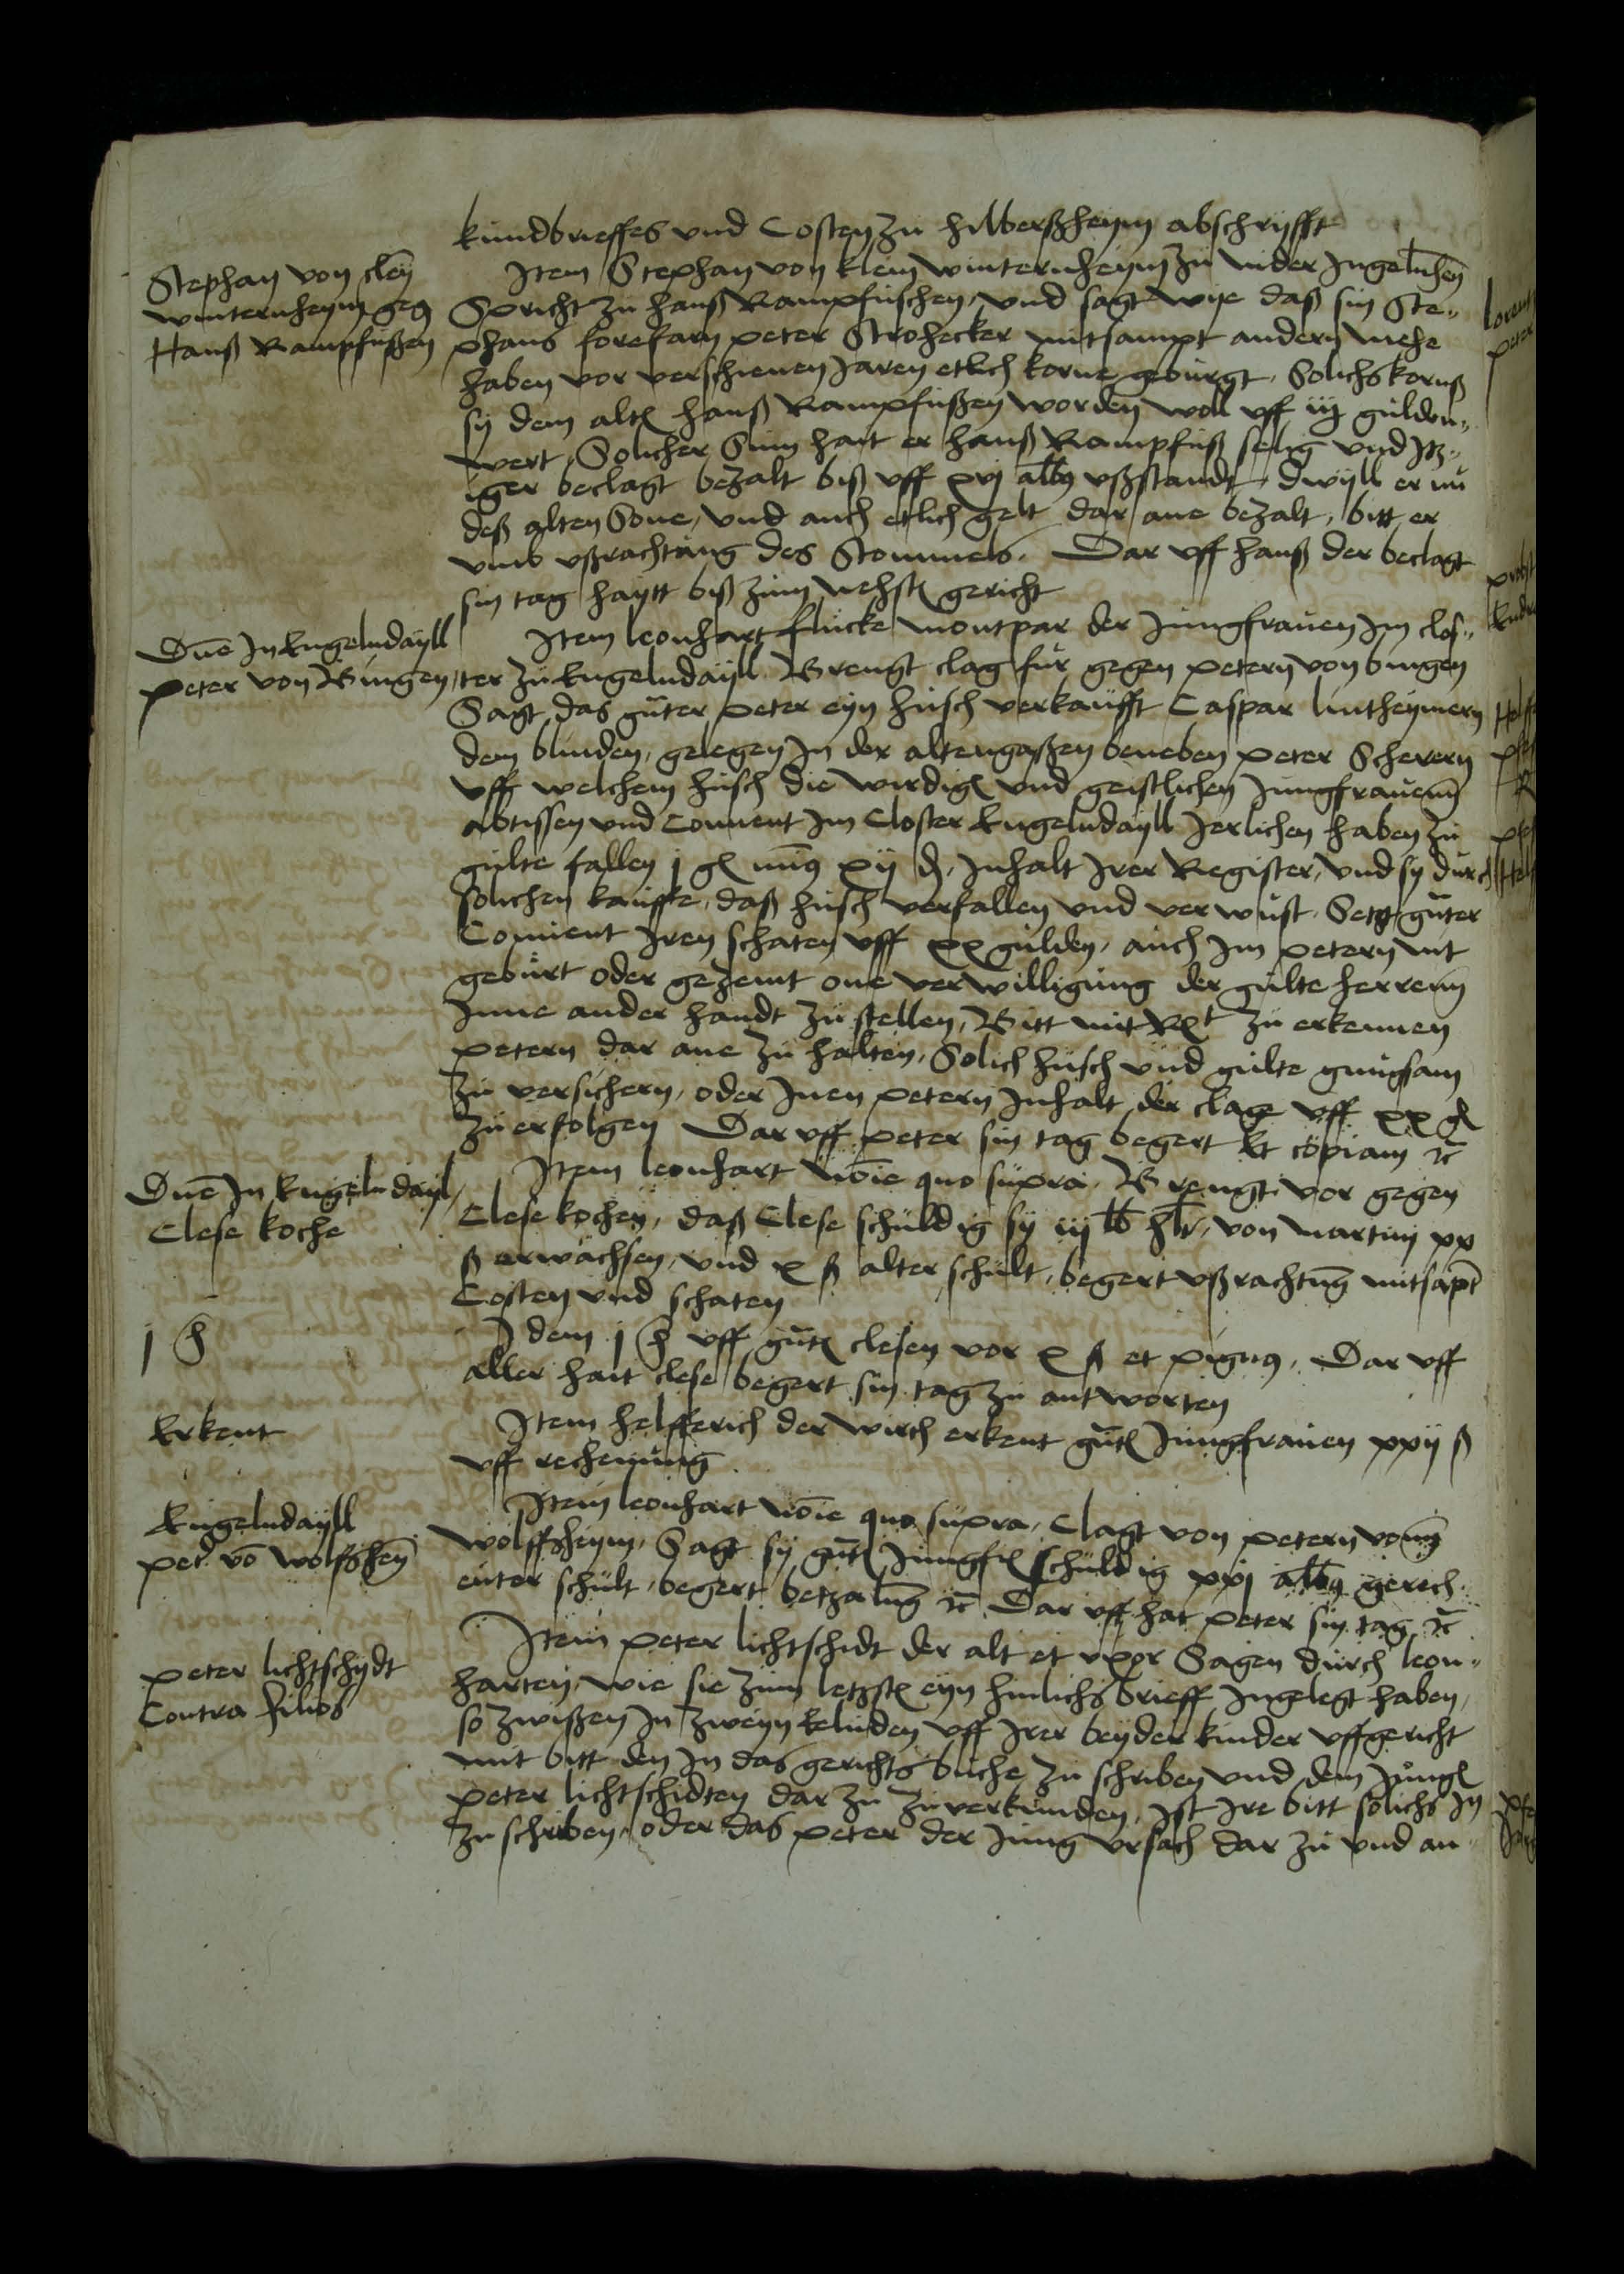 kundbrieffes vnd Costen zu hilberßheym abschryfft
Stephan von cleȳ
winternheym geḡ
Hanß Rampfußen
Item Stephan von klein winternheym zu nider Ingelnheȳ
Spricht zu hanß Rampfuschen, vnd sagt wye daß sin Ste„
phans forefarn peter Strohecker mitsampt andern mehe
haben vor verschienen Jaren etlich korne geburgt, Solichs kornß
sy dem alten hanß Rampfußen worden woll vff iij gulden„
wert, Solicher Sum hait er hanß Rampfuß selig vnd Itz„
iger beclagt bezalt biß vff xvj albus vßstandt, dwyll er nu
deß alten Sone, vnd auch etlich gelt dar ane bezalt, bitt er
vmb vßrachtung des Stommels. Dar vff hanß der beclagt
sin tag haytt biß zum nehsten gericht
Dnē In Engelndayll
Peter von Bingen
Item leonhart flucke montpar der Jungfrauen Im clos„
ter zu Engelndayll Brengt clag fur gegen petern von bingen
Sagt das guter peter eyn husch verkaufft Caspar lintheymern
dem blinden, gelegen In der altengaßen beneben peter Scherern
vff welchem husch die wirdigen vnd geistlichen Jungfrauenn
abtissen vnd Conuent Im Closter Engelndayll Jerlichen haben zu
gulte fallen j gl minus xij d, Inhalt Irer Register, vnd sy durch
solichen kauffe, daß husch verfallen vnd verwust, Setzt guter
Conuent Iren schaten vff xx gulden, auch Im petern nit
geburt oder gezemt one verwilligung der gulte herrenn
Inne ander handt zu stellen, Bitt mit Rt zu erkennen
petern dar ane zu halten, Solich husch vnd gulte gnugsam
zu versichern, oder Inen petern Inhalt der clage vff xx gl
zu erfolgen Dar vff peter sin tag begert et copiam ꝛc
Dnē In Engelndayl,
Clese koche
Item leonhart nōie quo supra, Brengt vor gegen
Clese kochen, daß Clese schuldig sy iij lb hlr, von martini xx
ß erwachsen, vnd x ß alter schult, begert vßrachtūg mitsāpt
Costen vnd schaten
j h
dem j h vff gutē clesen vor x ß et pignus, Dar vff
aller hait clese begert sin tag zu antworten
Erkent
Item helfferich der wirch erkent gutē Jungfrauen xxij ß
vff rechenung
Engelndayll
pet. vō wolfsheȳ
Item leonhart nōie quo supra, Clagt von petern vonn
wolffsheym, Sagt sy gutē Jungfr schuldig xxj albus gerech„
enter schult, begert betzalūg ꝛc Dar vff hat peter sin tag ꝛc
peter lichtschydt
Contra filios
Item peter lichtschidt der alt et vxor Sagen durch leon„
harten, wie sie zum letzsten eyn hinlichs brieff Ingelegt haben,
so zwißen In zweyn eeluden vff Irer beyder kinder vffgericht
mit bitt den In das gerichts buche zu schriben vnd dem Jungē
peter lichtschidten dar zu zu verkunden, Ist Ire bitt solichs In
zu schriben, oder das peter der Jung vrsach dar zu vnd an„